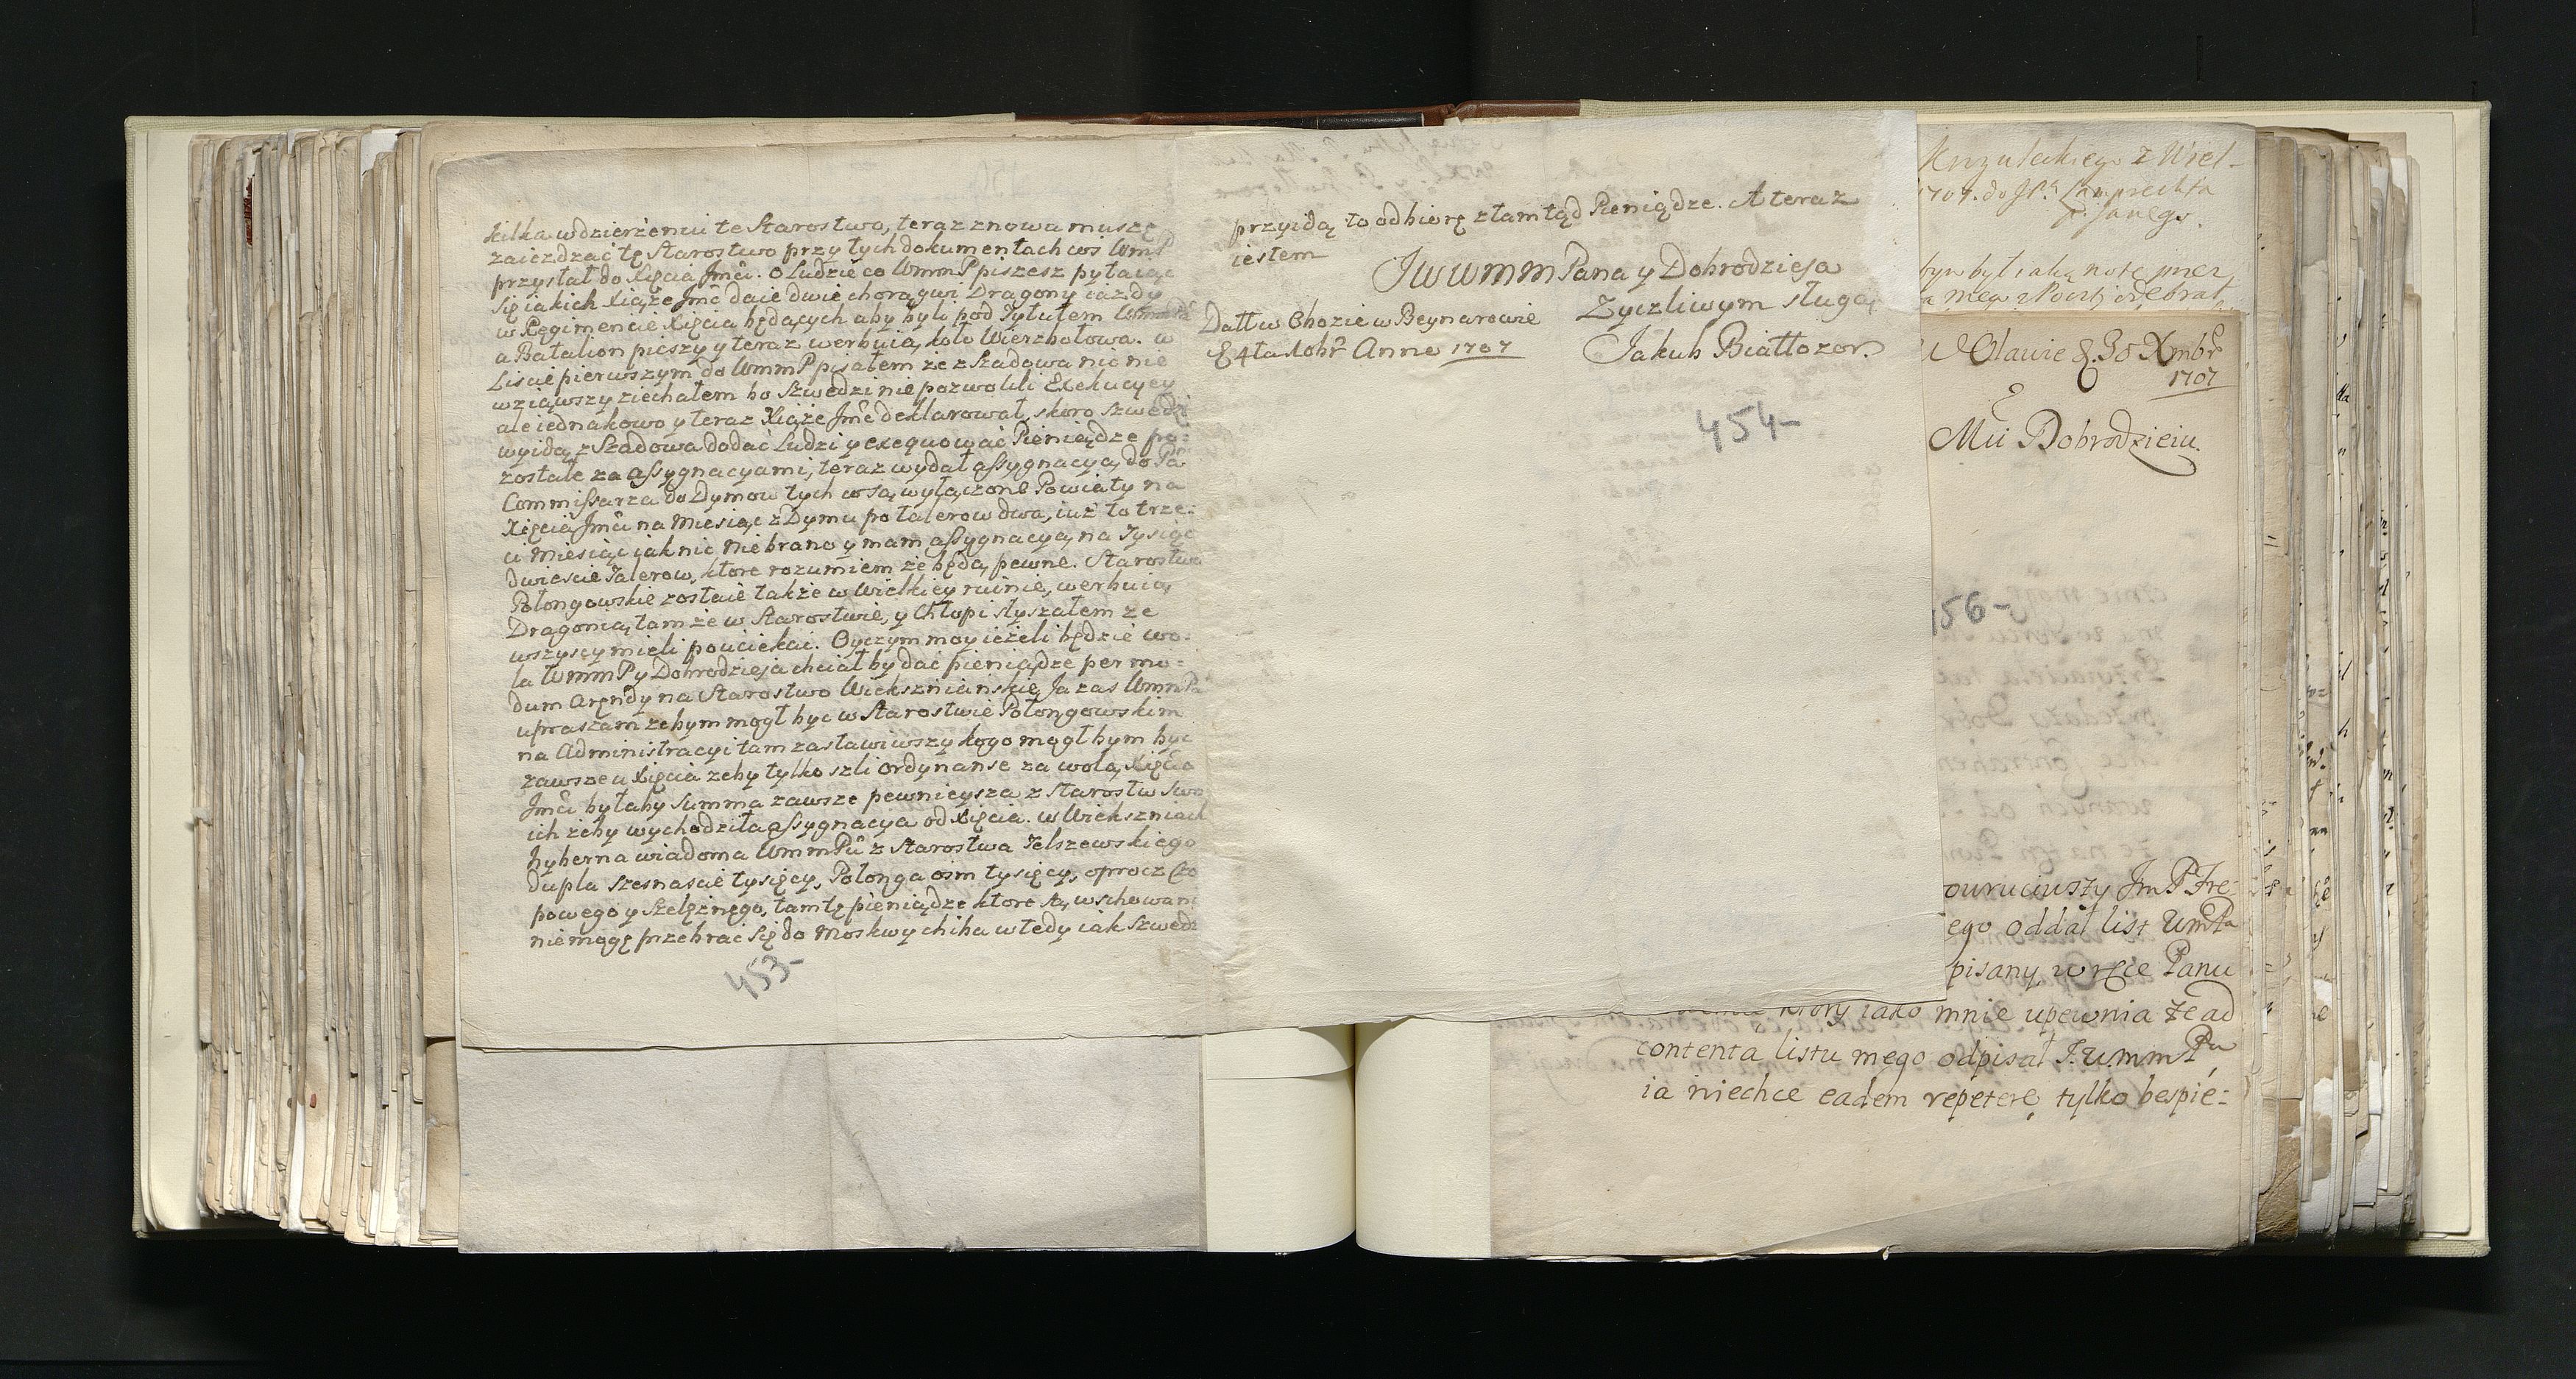 kilka w dzierżeniu te Starostwo, teraz znowu muszę
zaiezdzać tę Starostwo przy tych dokumentach coś WmP
przysłał do Xięcia Jmci. o Ludzie co WmmP piszesz pytaiąc
się iakich Xiąże Jmć daie dwie chorągwi Dragony iazdy
w Regimencie Xięcia będących aby byli pod Tytułem
a Batalion pieszy y teraz werbuią koło Wierzbołowa. w
Liscie pierwszym do WmmP pisałem że z Szadowa nic nie
wziąwszy ziechałem bo Szwedzi nie pozwolili Exekucyey
ale iednakowo y teraz Xiąże Jmć deklarował, skoro Szwedzi
wyidą z Szadowa dodać Ludzi y exequować Pieniądze po-
zostałe za assygnacyami, teraz wydał assygnacyą do Pa
Commissarza do Dymow tych co są wyłączone Powiaty na
Xięcia Jmci na Miesiąc z Dymu po talerow dwa, iuż to trze-
ci Miesiąc iak nic nie brano y mam assygnacyą na Tysiąc
dwiescie Talerow, ktore rozumiem że będą pewne. Starostwo
Połongowskie zostaie także w Wielkiey ruinie, werbuią
Dragonią tam że w Starostwie, y Chłopi słyszałem ze
wszyscy mieli pouciekać. Oyczym moy ieżeli będzie wo-
la WmmP y Dobrodzieja chciał by dać pieniądze per mo-
dum Arendy na Starostwo Wiekszniańskie, Ja zas WmmPa
upraszam żebym mogł być w Starostwie Połongowskim
na Administracyi tam zastawiwszy kogo mogł bym być
zawsze u Xięcia żeby tylko szli ordynanse za wolą Xięcia
Jmci byłaby summa zawsze pewnieysza z Starostw swo
ich żeby wychodziła assygnacya od Xięcia. w Wiekszniach
hyberna wiadoma WmmPu z Starostwa Telszewskiego
dupla szesnascie tysięcy, Połonga osm tysięcy, oprocz Czo
powego y Szelężnego, tamtę pieniądze ktore są w schowaniu
nie mogę przebrać się do Moskwy chiba w tedy iak Szwedzi
453-
przyidą to odbiorę z tamtąd Pieniądze. A teraz
iestem
JWWmm Pana y Dobrodzieja
Zyczliwym sługą
Datt w Obozie w Beynarowie
Jakub Białłozor
Anno 1707
454-
1707. do
Oławie d. 30 Xmbr
1707
Mći Dobrodzieiu.
156-
Jm P Fre-
ego oddał list UmPa
pisany, w ręce Panu
ktory iako mnie upewnia że ad
contenta listu mego odpisał J.U.mmPu
ia niechce eadem repetere, tylko bespie-